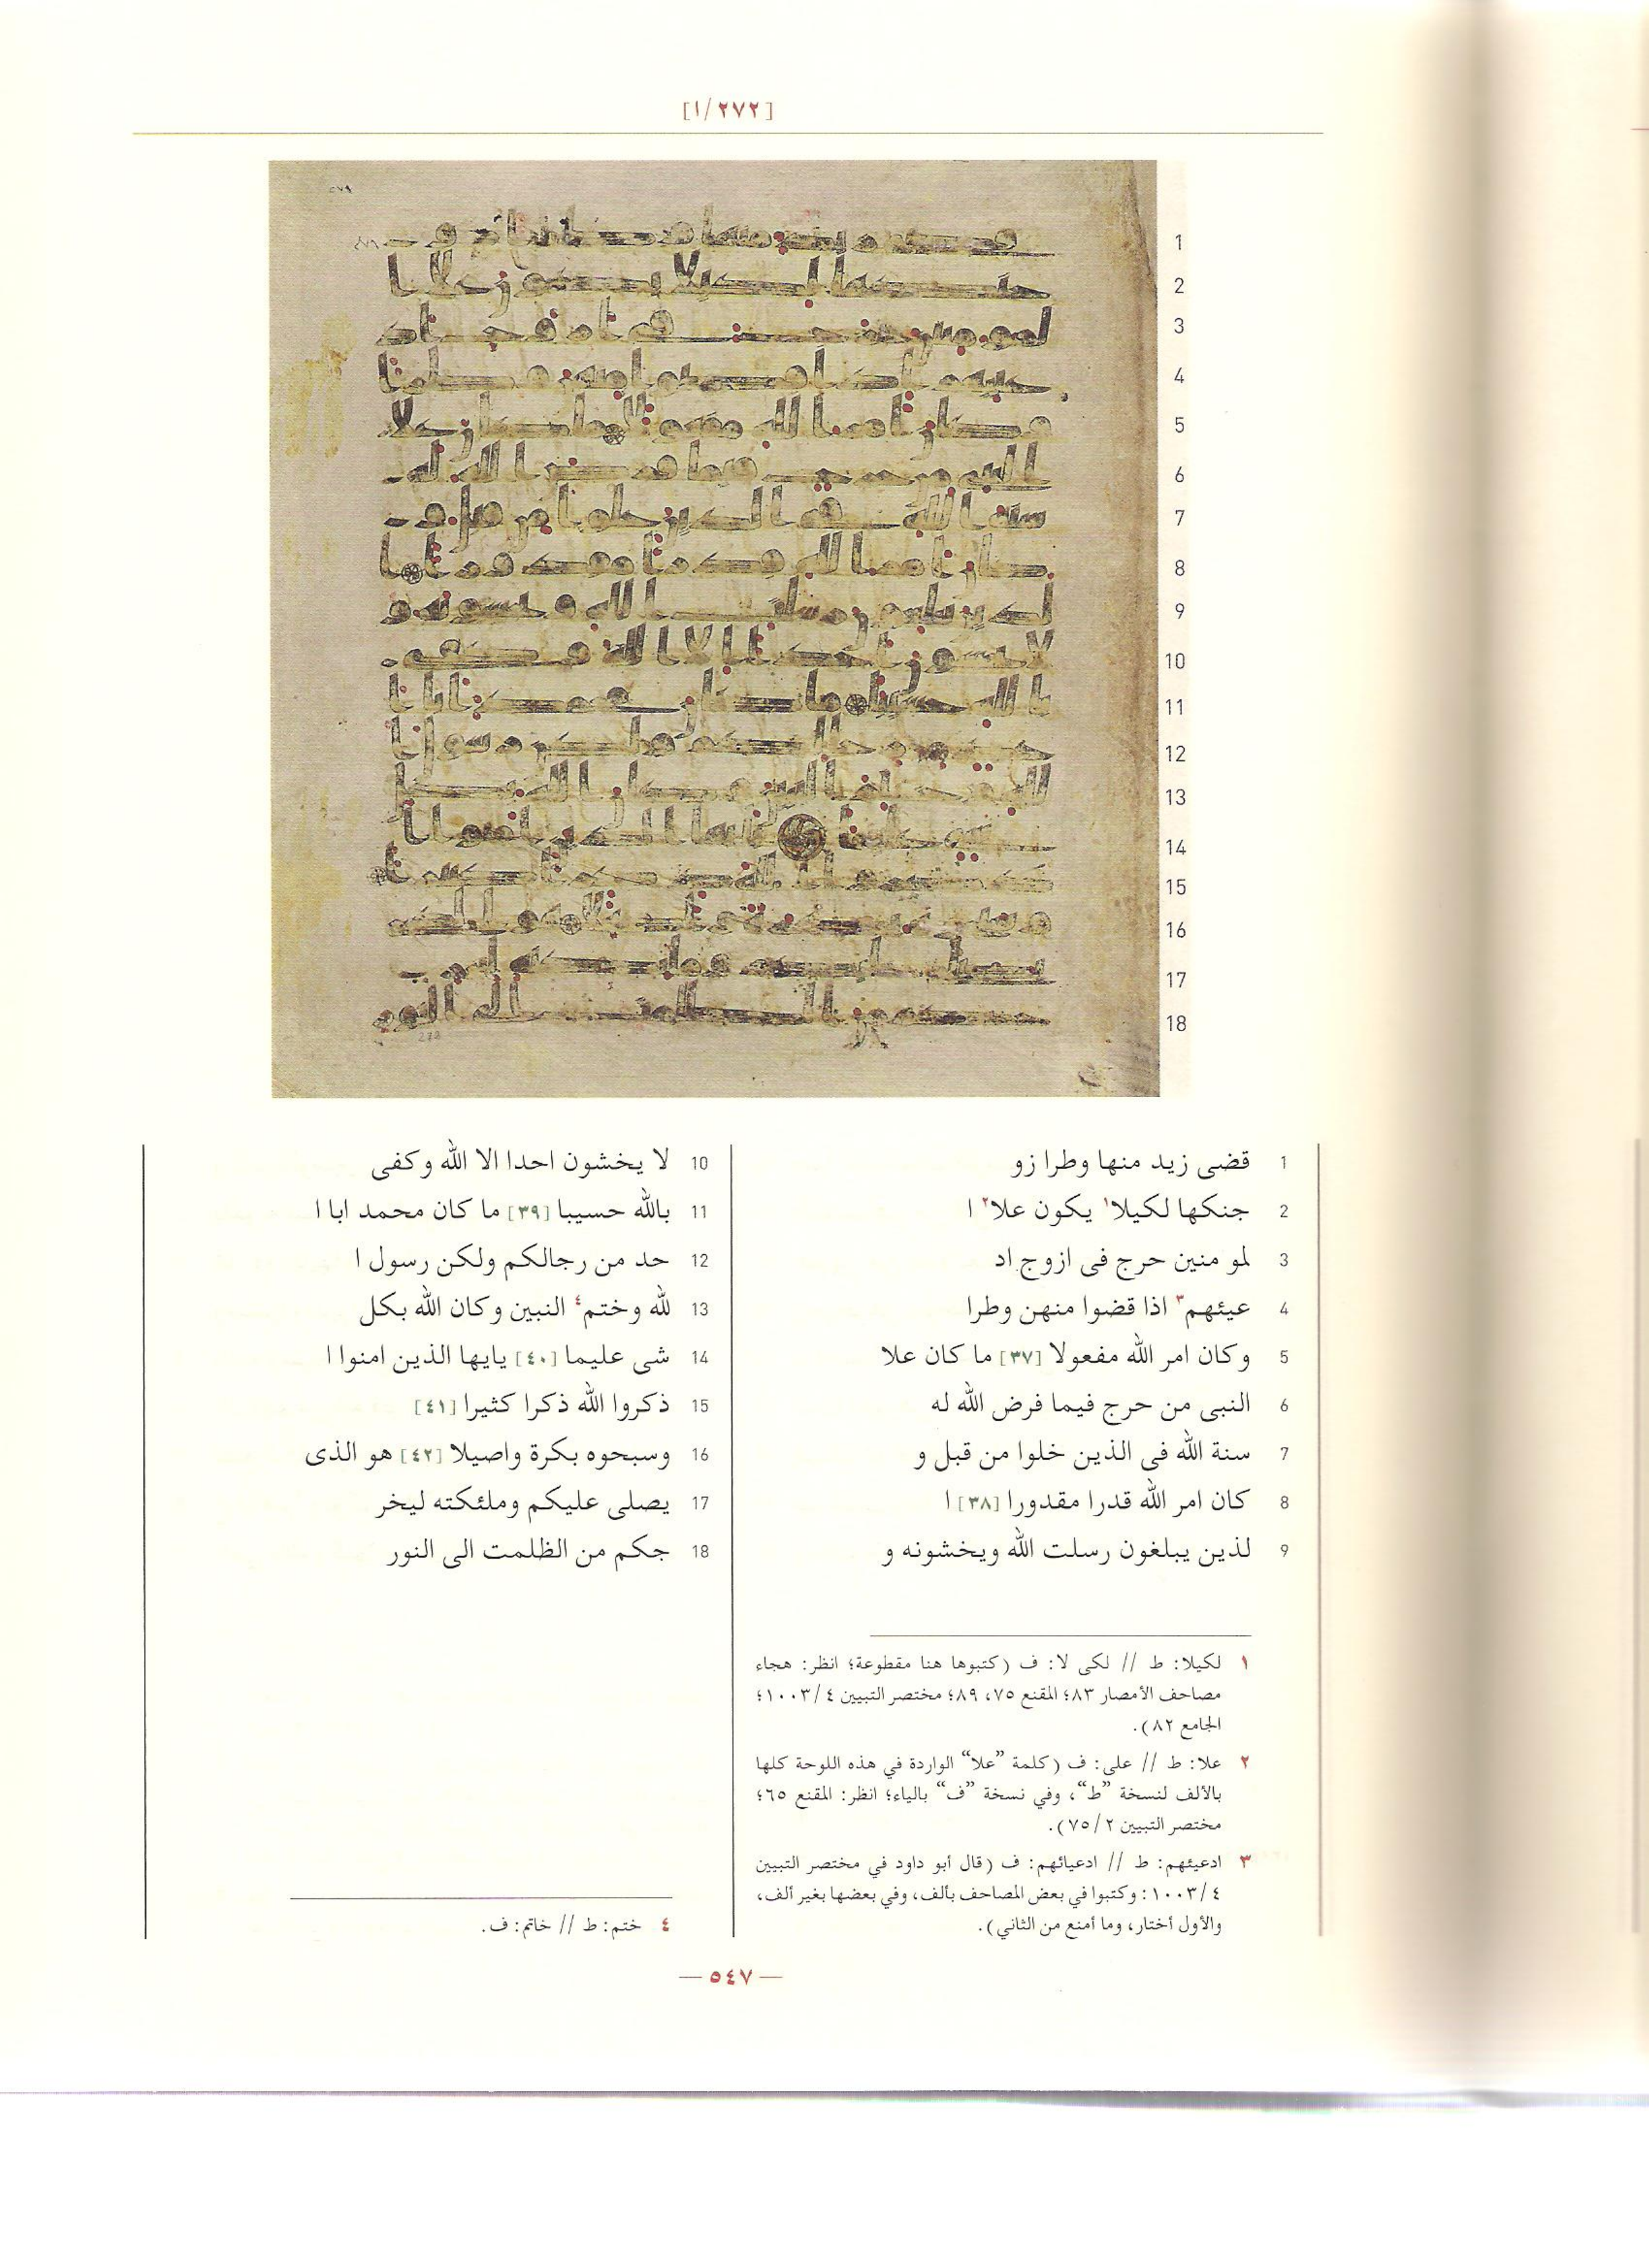 [٢٧٢/١]
1
2
3
4
5
6
7
8
9
10
11
12
13
14
15
16
17
18
1 قضى زيد منها وطرا زو
2 جنكها لكيلا١ يكون علا٢ ا
3 لمو منين حرج فى ازوج اد
4 عيئهم٣ اذا قضوا منهن وطرا
5 وكان امر الله مفعولا [٣٧] ما كان علا
6 النبى من حرج فيما فرض الله له
7 سنة الله فى الذين خلوا من قبل و
8 كان امر الله قدرا مقدورا [٣٨] ا
9 لذين يبلغون رسلت الله ويخشونه و
10 لا يخشون احدا الا الله وكفى
11 بالله حسيبا [٣٩] ما كان محمد ابا ا
12 حد من رجالكم ولكن رسول ا
13 لله وختم٤ النبين وكان الله بكل
14 شى عليما [٤٠] يايها الذين امنوا ا
15 ذكروا الله ذكرا كثيرا [٤١]
16 وسبحوه بكرة واصيلا [٤٢] هو الذى
17 يصلى عليكم وملئكته ليخر
18 جكم من الظلمت الى النور
١ لكيلا: ط // لكى لا: ف (كتبوها هنا مقطوعة؛ انظر: هجاء
مصاحف الأمصار ٨٣؛ المقنع ٧٥، ٨٩؛ مختصر التبيين ٤/١٠٠٣؛
الجامع ٨٢).
٢ علا: ط // على: ف (كلمة ”علا“ الواردة في هذه اللوحة كلها
بالألف لنسخة ”ط“، وفي نسخة ”ف“ بالياء؛ انظر: المقنع ٦٥؛
مختصر التبيين ٢/٧٥).
٣ ادعيئهم: ط // ادعيائهم: ف (قال أبو داود في مختصر التبيين
٤/١٠٠٣: وكتبوا في بعض المصاحف بألف، وفي بعضها بغير ألف،
والأول أختار، وما أمنع من الثاني).
٤ ختم: ط // خاتم: ف.
— ٥٤٧ —